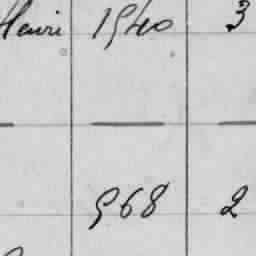 Henri 1940 3
968 2